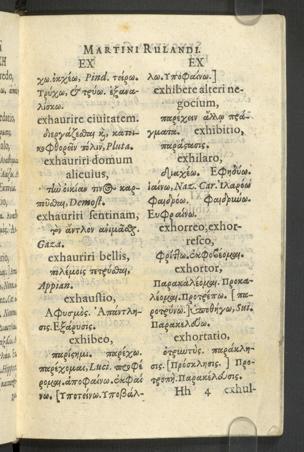 MARTINI RULANDI.
EX
χω. ἐκχέω, Pind. τείρω.
Τρύχω, & τρύω. ἐξανα-
λίσκω.
exhaurire ciuitatem.
διεργάζεσθαι κỳ κατοι-
κοφθορεῖν πόλιν, Pluta.
exhauriri domum
alicuius,
τὴν οἰκίαν τινὸς καρ-
πῶσαι, Demost.
exhauriri sentinam,
τὸν ἄντλον
Gaza.
exhauriri bellis,
πολέμοις τετρῦσθαι,
Appian.
exhaustio,
Αφυσμὸς. Απάντλη-
σις. Εξάρυσις.
exhibeo,
παρίστημι. παρέχω.
παρέχομαι, Luci. προφέ
ρομαι. ἀποφαίνω. ἐκφαί
νω. [Υποτείνω. Υποβάλ-
EX
λω. Υποφαίνω.]
exhibere alteri ne-
gocium,
παρέχειν ἄλλῳ πρά-
γματα. exhibitio,
παράστασις.
exhilaro,
Εφηδύω.
ἰαίνω, Naz. Car. Ιλαρόω
Φαιδρόω. Φαιδρύνω.
Ευφραίνω.
exhorreo, exhor-
resco,
Φρίττω. ἐκφοβέομαι.
exhortor,
Παρακαλέομαι. Προκα-
λέομαι. Προτρέπω. [πα-
ροτρύνω.] ὑποθήγω, Sui.
Παρακελεύω.
exhortatio,
ὀτρυντὺς. παράκλη-
σις. [Πρόσκλησις.] Προ-
τροπή. Παρακέλευσις.
Hh 4 exhul-